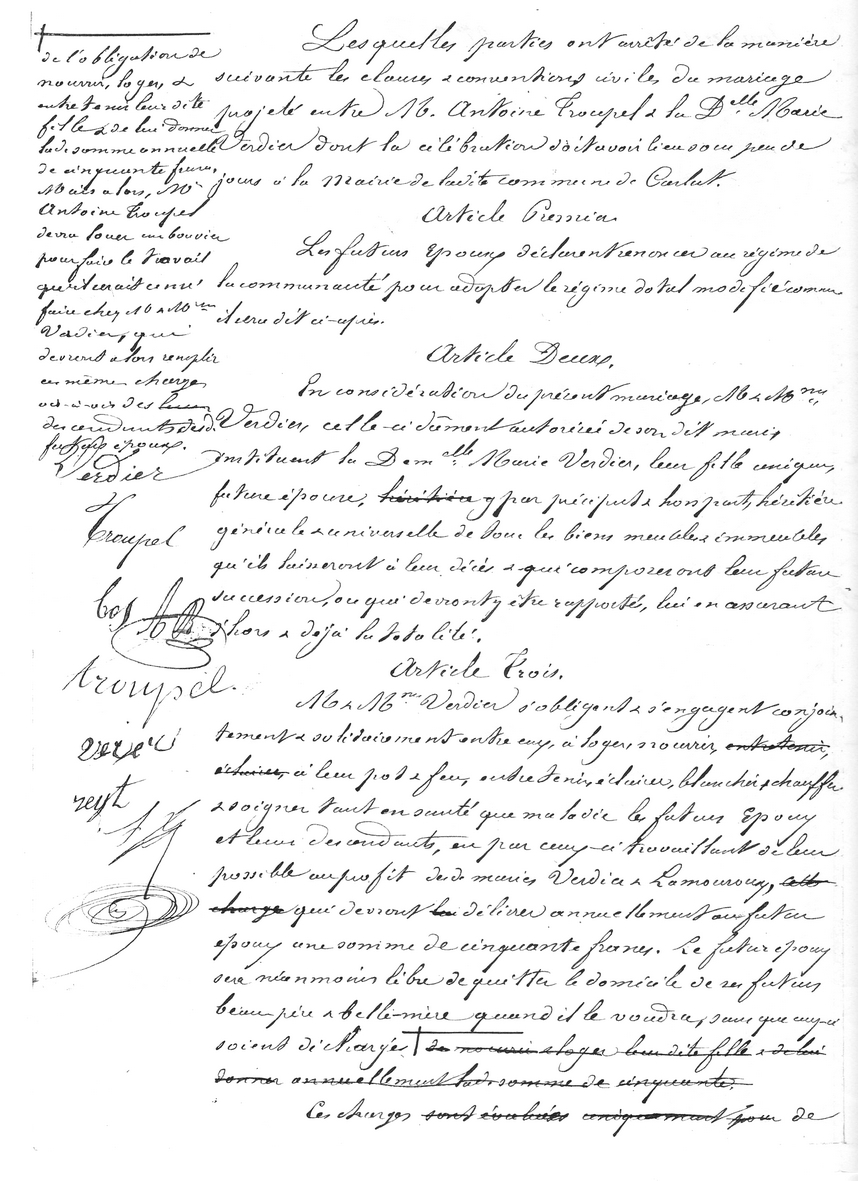 de l'obligation de
nourrir, loger, &
entretenir leur dite
fille & de lui donner
la de somme annuelle
de cinquante francs,
Mais alors, Mr
Antoine Troupel
devra louer un bouvier
pour faire le travail
qu'il serait censé
faire chez M & Mme
Verdier, qui
devront alors remplir
ces même charges
vis-à-vis des leurs
descendants desd.
futurs époux.
Verdier
Troupel
troupel.
Lesquelles parties ont arrêté de la manière
suivante les clauses & conventions civiles du mariage
projeté entre M. Antoine Troupel & la Delle Marie
Verdier dont la célébration doit avoir lieu sous peu de
jours à la Mairie de ladite commune de Carlat.
Article Premier
Les futurs Epoux déclarent renoncer au régime de
la communauté pour adopter le régime dotal modifié comme
il sera dit ci-après.
Article Deux.
En considération du présent mariage, M & Mme
Verdier, celle-ci dûment autorisée de son dit mari,
instituent la Demelle Marie Verdier, leur fille unique,
future épouse, héritière par préciput & hors part, héritière
générale & universelle de tous les biens meubles & immeubles
qu'ils laisseront à leur décès & qui composeront leur future
succession, ou qui devront y être rapportés, lui en assurant
d'hors & déjà la totalité.
Article Trois.
M & Mme Verdier s'obligent & s'engagent conjoin-
tement & solidairement entre eux, à loger, nourrir, entretenir,
éclairer, à leur pot & feu, entretenir, éclairer, blanchir & chauffer
& soigner tant en santé que maladie les futurs Epoux
et leurs descendants, en par ceux-ci travaillant de leur
possible au profit desd. mariés Verdier & Lamouroux, cette
charge qui devront lui délivrer annuellement au futur
époux une somme de cinquante francs. Le futur époux
sera néanmoins libre de quitter le domicile de ses futurs
beau-père & belle-mère quand il le voudra, sans que ceux-ci
soient déchargés de nourrir & loger leur dite fille & de lui
donner annuellement la de somme de cinquante.
Ces charges sont évaluées uniquement pour de